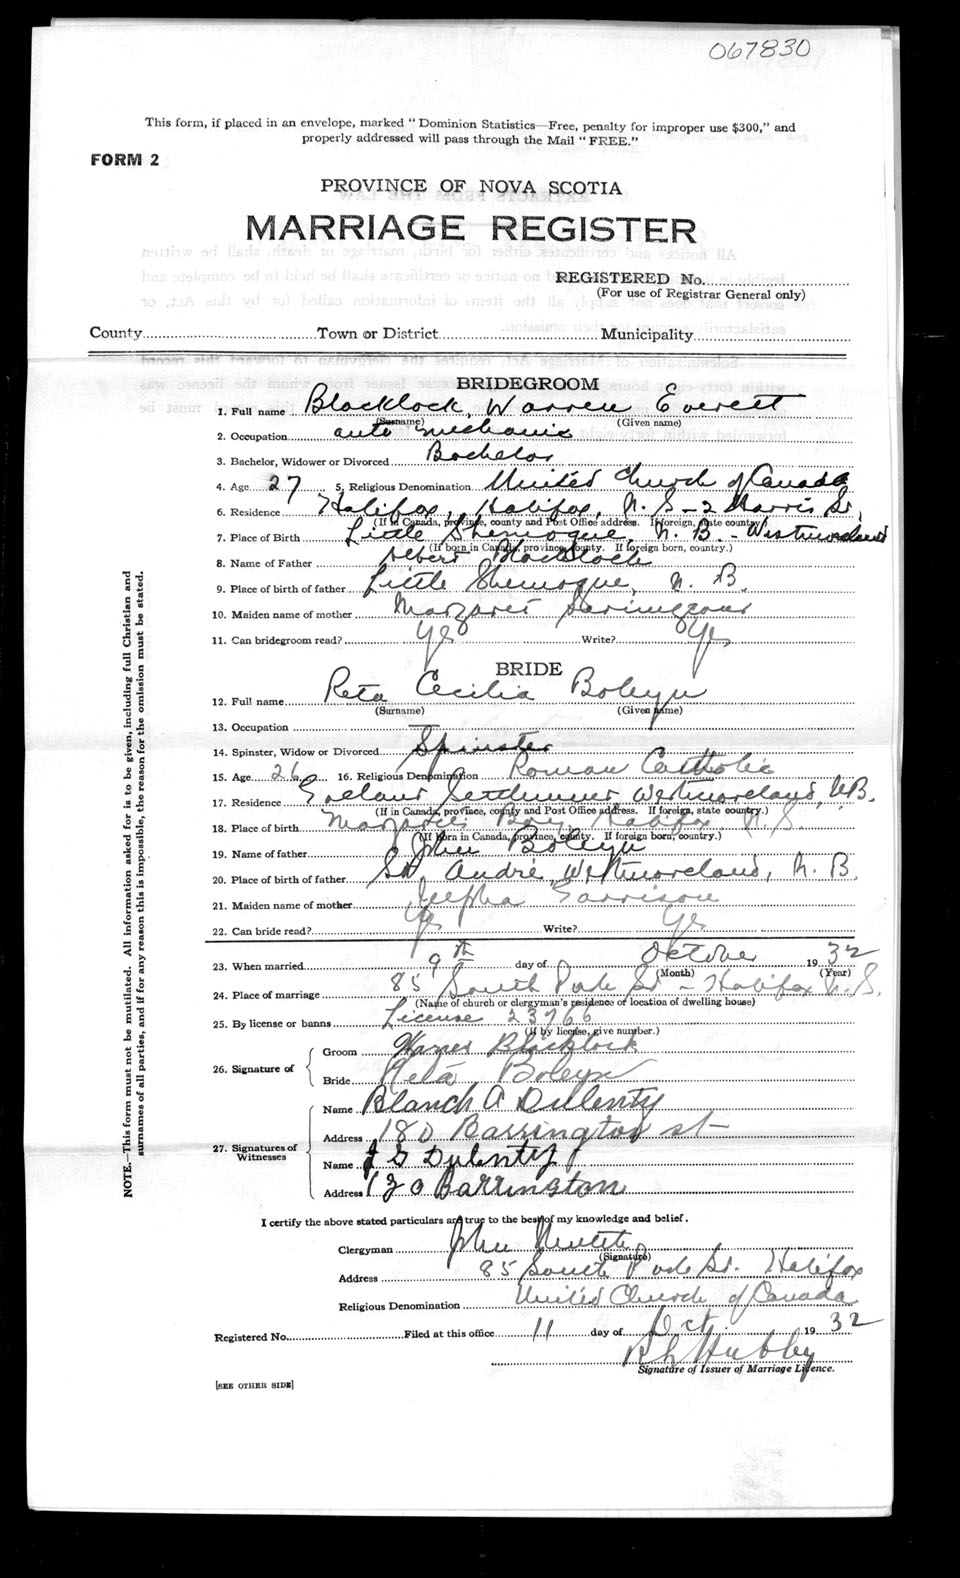 067830
This form, if placed in an envelope, marked "Dominion Statistics—Free, penalty for improper use $300," and
properly addressed will pass through the Mail "FREE."
FORM 2
PROVINCE OF NOVA SCOTIA
MARRIAGE REGISTER
REGISTERED No.
(For use of Registrar General only)
County Town or District Municipality
BRIDEGROOM
1. Full name Blacklock, Warren Everett
(Surname) (Given name)
2. Occupation auto mechanic
3. Bachelor, Widower or Divorced Bachelor
4. Age 27 5. Religious Denomination United Church of Canada
6. Residence Halifax, Halifax, N. S - 2 Harris St,
(If in Canada, province, county and Post Office address. If foreign, state country)
7. Place of Birth Little Shemogue, N. B. - Westmorland
(If born in Canada, province, county. If foreign born, country.)
8. Name of Father Albert Blacklock
9. Place of birth of father Little Shemogue, N. B.
10. Maiden name of mother Margaret Scrimgeour
11. Can bridegroom read? Yes Write? Yes
BRIDE
12. Full name Reta Cecilia Boleyn
(Surname) (Given name)
13. Occupation —
14. Spinster, Widow or Divorced Spinster
15. Age 26 16. Religious Denomination Roman Catholic
17. Residence Westmoreland, N.B.
(If in Canada, province, county and Post Office address. If foreign, state country.)
18. Place of birth Bay, Halifax, N. S.
(If born in Canada, province, county. If foreign born, country.)
19. Name of father John Boleyn
20. Place of birth of father St. André, Westmoreland, N. B.
21. Maiden name of mother Garrison
22. Can bride read? Yes Write? Yes
23. When married 9th day of October 19 32
(Month) (Year)
24. Place of marriage 85 South Park St - Halifax N. S.
(Name of church or clergyman's residence or location of dwelling house)
25. By license or banns License 23766
(If by license, give number.)
26. Signature of
Groom Blacklock
Bride Reta Boleyn
27. Signatures of
Witnesses
Name Blanch A Dulenty
Address 180 Barrington st
Name J S Dulenty
Address Barrington
I certify the above stated particulars are true to the best of my knowledge and belief.
Clergyman John
(Signature)
Address 85 South Park St. Halifax
Religious Denomination United Church of Canada
Registered No. Filed at this office 11 day of Oct. 19 32
Hubley
Signature of Issuer of Marriage Licence.
[SEE OTHER SIDE]
NOTE.—This form must not be mutilated. All information asked for is to be given, including full Christian and
surnames of all parties, and if for any reason this is impossible, the reason for the omission must be stated.